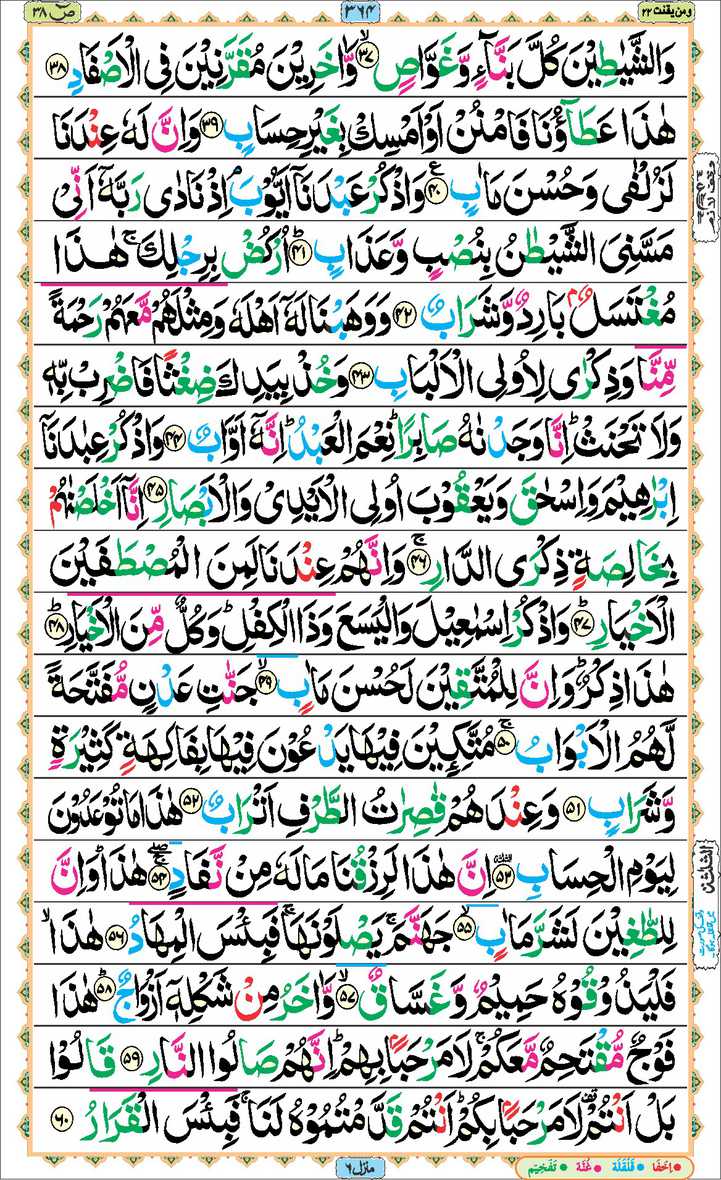 ومن يقنت ٢٣ ٣٦٤ صٓ ٣٨
وَالشَّيٰطِيْنَ كُلَّ بَنَّآءٍ وَّغَوَّاصٍ ۙ﴿۳۷﴾ وَّاٰخَرِيْنَ مُقَرَّنِيْنَ فِى الْاَصْفَادِ ﴿۳۸﴾
هٰذَا عَطَآؤُنَا فَامْنُنْ اَوْ اَمْسِكْ بِغَيْرِ حِسَابٍ ﴿۳۹﴾ وَاِنَّ لَهٗ عِنْدَنَا
لَزُلْفٰى وَحُسْنَ مَاٰبٍ ﴿۴۰﴾ ع وَاذْكُرْ عَبْدَنَاۤ اَيُّوْبَ ۘ اِذْ نَادٰى رَبَّهٗۤ اَنِّىْ
مَسَّنِىَ الشَّيْطٰنُ بِنُصْبٍ وَّعَذَابٍ ؕ﴿۴۱﴾ اُرْكُضْ بِرِجْلِكَ ۚ هٰذَا
مُغْتَسَلٌۢ بَارِدٌ وَّشَرَابٌ ﴿۴۲﴾ وَوَهَبْنَا لَهٗۤ اَهْلَهٗ وَمِثْلَهُمْ مَّعَهُمْ رَحْمَةً
مِّنَّا وَذِكْرٰى لِاُولِى الْاَلْبَابِ ﴿۴۳﴾ وَخُذْ بِيَدِكَ ضِغْثًا فَاضْرِبْ بِّهٖ
وَلَا تَحْنَثْ ؕ اِنَّا وَجَدْنٰهُ صَابِرًا ؕ نِعْمَ الْعَبْدُ ؕ اِنَّهٗۤ اَوَّابٌ ﴿۴۴﴾ وَاذْكُرْ عِبٰدَنَاۤ
اِبْرٰهِيْمَ وَاِسْحٰقَ وَيَعْقُوْبَ اُولِى الْاَيْدِىْ وَالْاَبْصَارِ ﴿۴۵﴾ اِنَّاۤ اَخْلَصْنٰهُمْ
بِخَالِصَةٍ ذِكْرَى الدَّارِ ۚ﴿۴۶﴾ وَاِنَّهُمْ عِنْدَنَا لَمِنَ الْمُصْطَفَيْنَ
الْاَخْيَارِ ؕ﴿۴۷﴾ وَاذْكُرْ اِسْمٰعِيْلَ وَالْيَسَعَ وَذَا الْكِفْلِ ؕ وَكُلٌّ مِّنَ الْاَخْيَارِ ؕ﴿۴۸﴾
هٰذَا ذِكْرٌ ؕ وَاِنَّ لِلْمُتَّقِيْنَ لَحُسْنَ مَاٰبٍ ۙ﴿۴۹﴾ جَنّٰتِ عَدْنٍ مُّفَتَّحَةً
لَّهُمُ الْاَبْوَابُ ۚ﴿۵۰﴾ مُتَّكِـِٕيْنَ فِيْهَا يَدْعُوْنَ فِيْهَا بِفَاكِهَةٍ كَثِيْرَةٍ
وَّشَرَابٍ ﴿۵۱﴾ وَعِنْدَهُمْ قٰصِرٰتُ الطَّرْفِ اَتْرَابٌ ﴿۵۲﴾ هٰذَا مَا تُوْعَدُوْنَ
لِيَوْمِ الْحِسَابِ ﴿۵۳﴾ اِنَّ هٰذَا لَرِزْقُنَا مَا لَهٗ مِنْ نَّفَادٍ ﴿۵۴﴾ هٰذَا ؕ وَاِنَّ
لِلطّٰغِيْنَ لَشَرَّ مَاٰبٍ ﴿۵۵﴾ جَهَنَّمَ ۚ يَصْلَوْنَهَا ۚ فَبِئْسَ الْمِهَادُ ﴿۵۶﴾ هٰذَا ۙ
فَلْيَذُوْقُوْهُ حَمِيْمٌ وَّغَسَّاقٌ ۙ﴿۵۷﴾ وَّاٰخَرُ مِنْ شَكْلِهٖۤ اَزْوَاجٌ ؕ﴿۵۸﴾ هٰذَا
فَوْجٌ مُّقْتَحِمٌ مَّعَكُمْ ۚ لَا مَرْحَبًۢا بِهِمْ ؕ اِنَّهُمْ صَالُوا النَّارِ ﴿۵۹﴾ قَالُوْا
بَلْ اَنْتُمْ لَا مَرْحَبًۢا بِكُمْ ؕ اَنْتُمْ قَدَّمْتُمُوْهُ لَنَا ۚ فَبِئْسَ الْقَرَارُ ﴿۶۰﴾
منزل ٦
اِخفَا قَلْقَلَة غُنَّة تَفْخِيْم